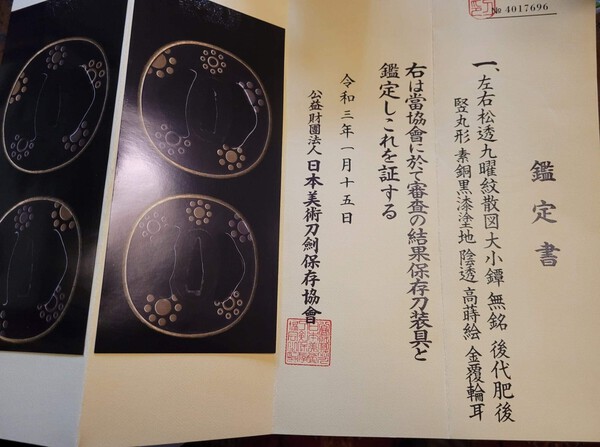 № 4017696
鑑定書
一、左右松透九曜紋散図大小鐔 無銘 後代肥後
竪丸形 素銅黒漆塗地 陰透 高蒔絵 金覆輪耳
右は當協會に於て審査の結果保存刀装具と
鑑定しこれを証する
令和三年一月十五日
公益財團法人 日本美術刀劍保存協會